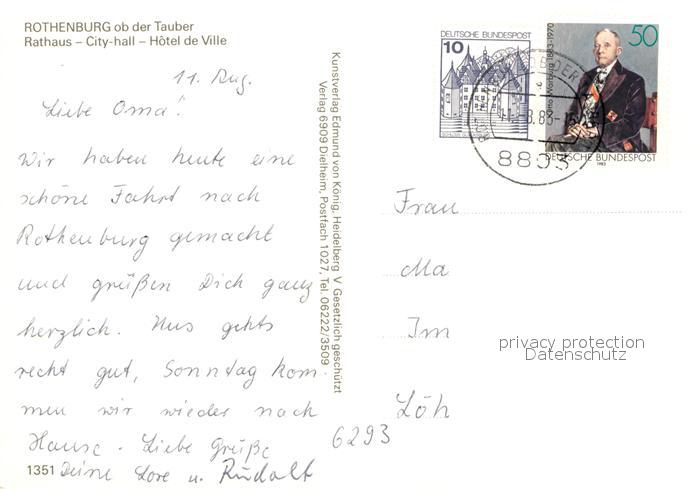 ROTHENBURG ob der Tauber
Rathaus – City-hall – Hôtel de Ville
11. Aug.
Liebe Oma!
Wir haben heute eine
schöne Fahrt nach
Rothenburg gemacht
und grüßen Dich ganz
herzlich. Uns gehts
recht gut, Sonntag kom-
men wir wieder nach
Hause. Liebe Grüße
1351 Deine Lore u. Rudolf
Kunstverlag Edmund von König, Heidelberg V Gesetzlich geschützt
Verlag 6909 Dielheim, Postfach 1027, Tel. 06222/3509
DEUTSCHE BUNDESPOST
10
50
Otto Warburg 1883-1970
DEUTSCHE BUNDESPOST
1983
8803
Frau
Ma
Im
Löh
6293
privacy protection
Datenschutz